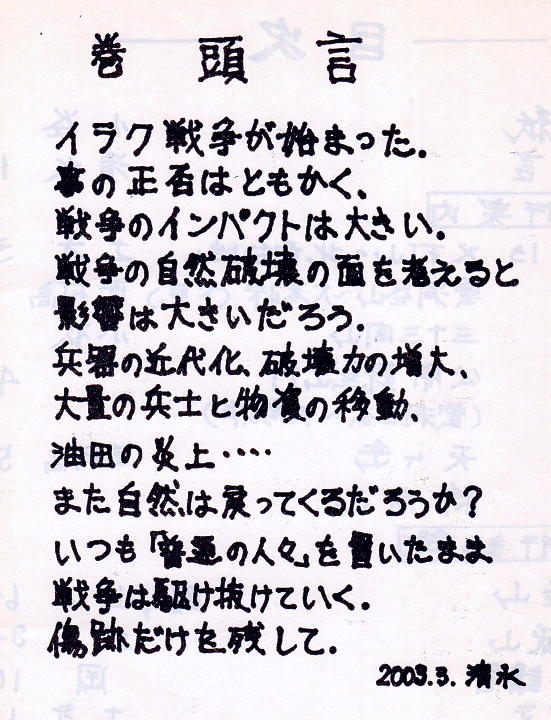 巻頭言
イラク戦争が始まった.
事の正否はともかく、
戦争のインパクトは大きい.
戦争の自然破壊の面を考えると
影響は大きいだろう.
兵器の近代化、破壊力の増大、
大量の兵士と物資の移動、
油田の炎上‥‥
また自然は戻ってくるだろうか?
いつも「普通の人々」を置いたまま
戦争は駆け抜けていく.
傷跡だけを残して.
2003.3.清水